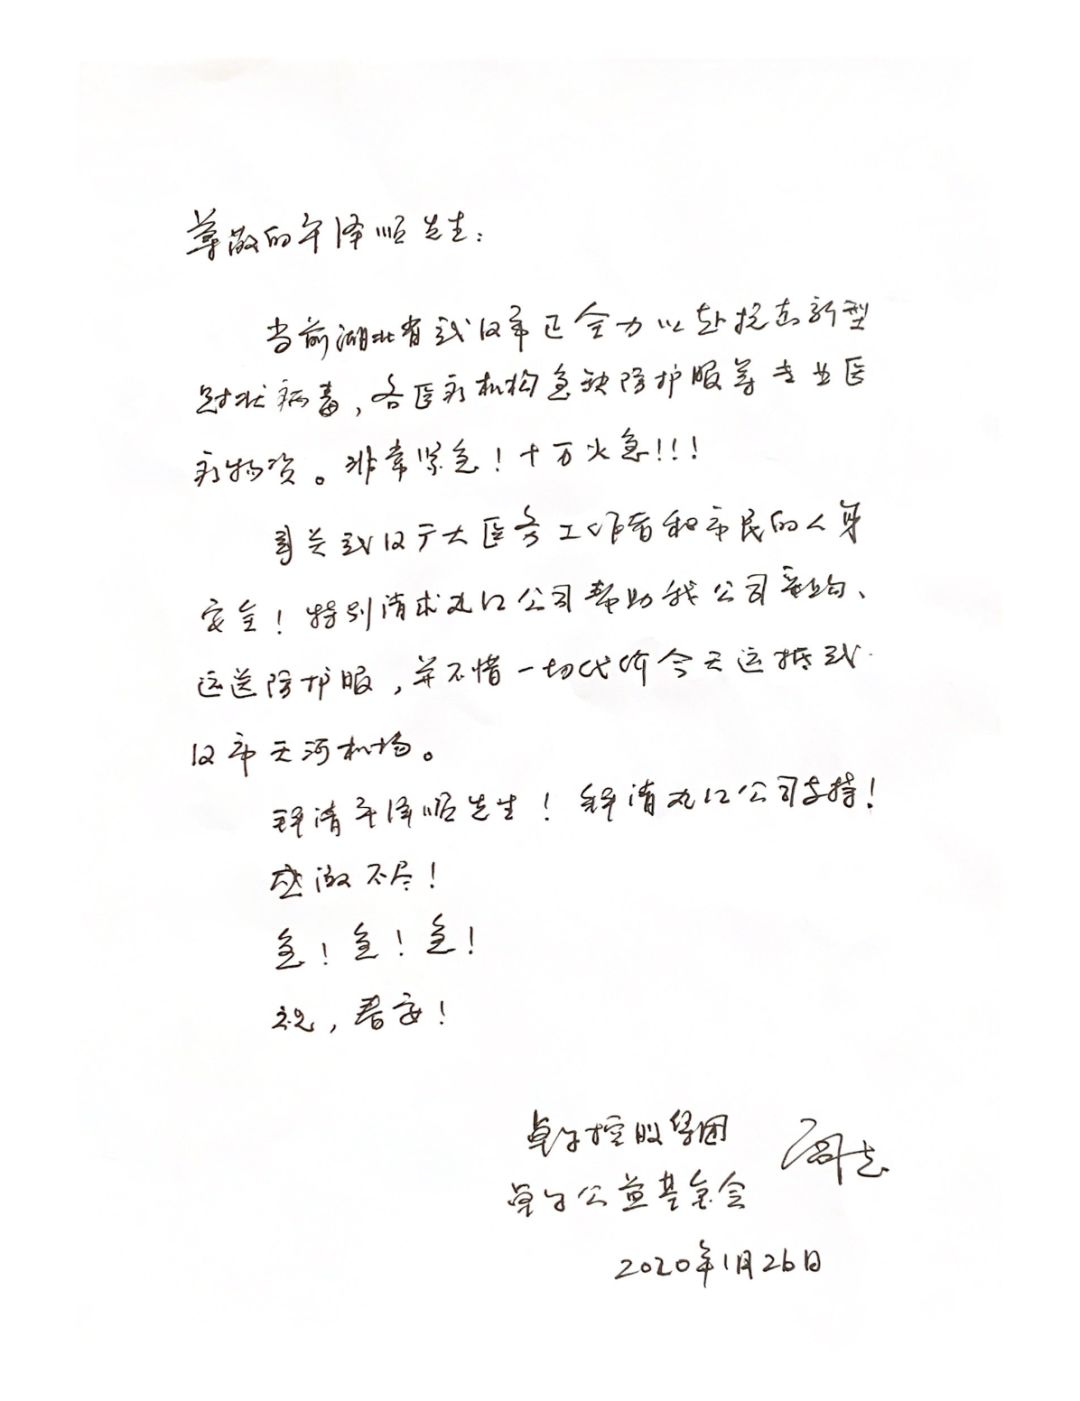 尊敬的平泽顺先生：
当前湖北省武汉市正全力以赴抗击新型
冠状病毒，各医疗机构急缺防护服等专业医
疗物资。非常紧急！十万火急！！！
事关武汉广大医务工作者和市民的人身
安全！特别请求丸红公司帮助我公司采购、
运送防护服，并不惜一切代价今天运抵武
汉市天河机场。
拜请平泽顺先生！拜请丸红公司支持！
感激不尽！
急！急！急！
祝，春安！
卓尔控股集团
阎志
卓尔公益基金会
2020年1月26日